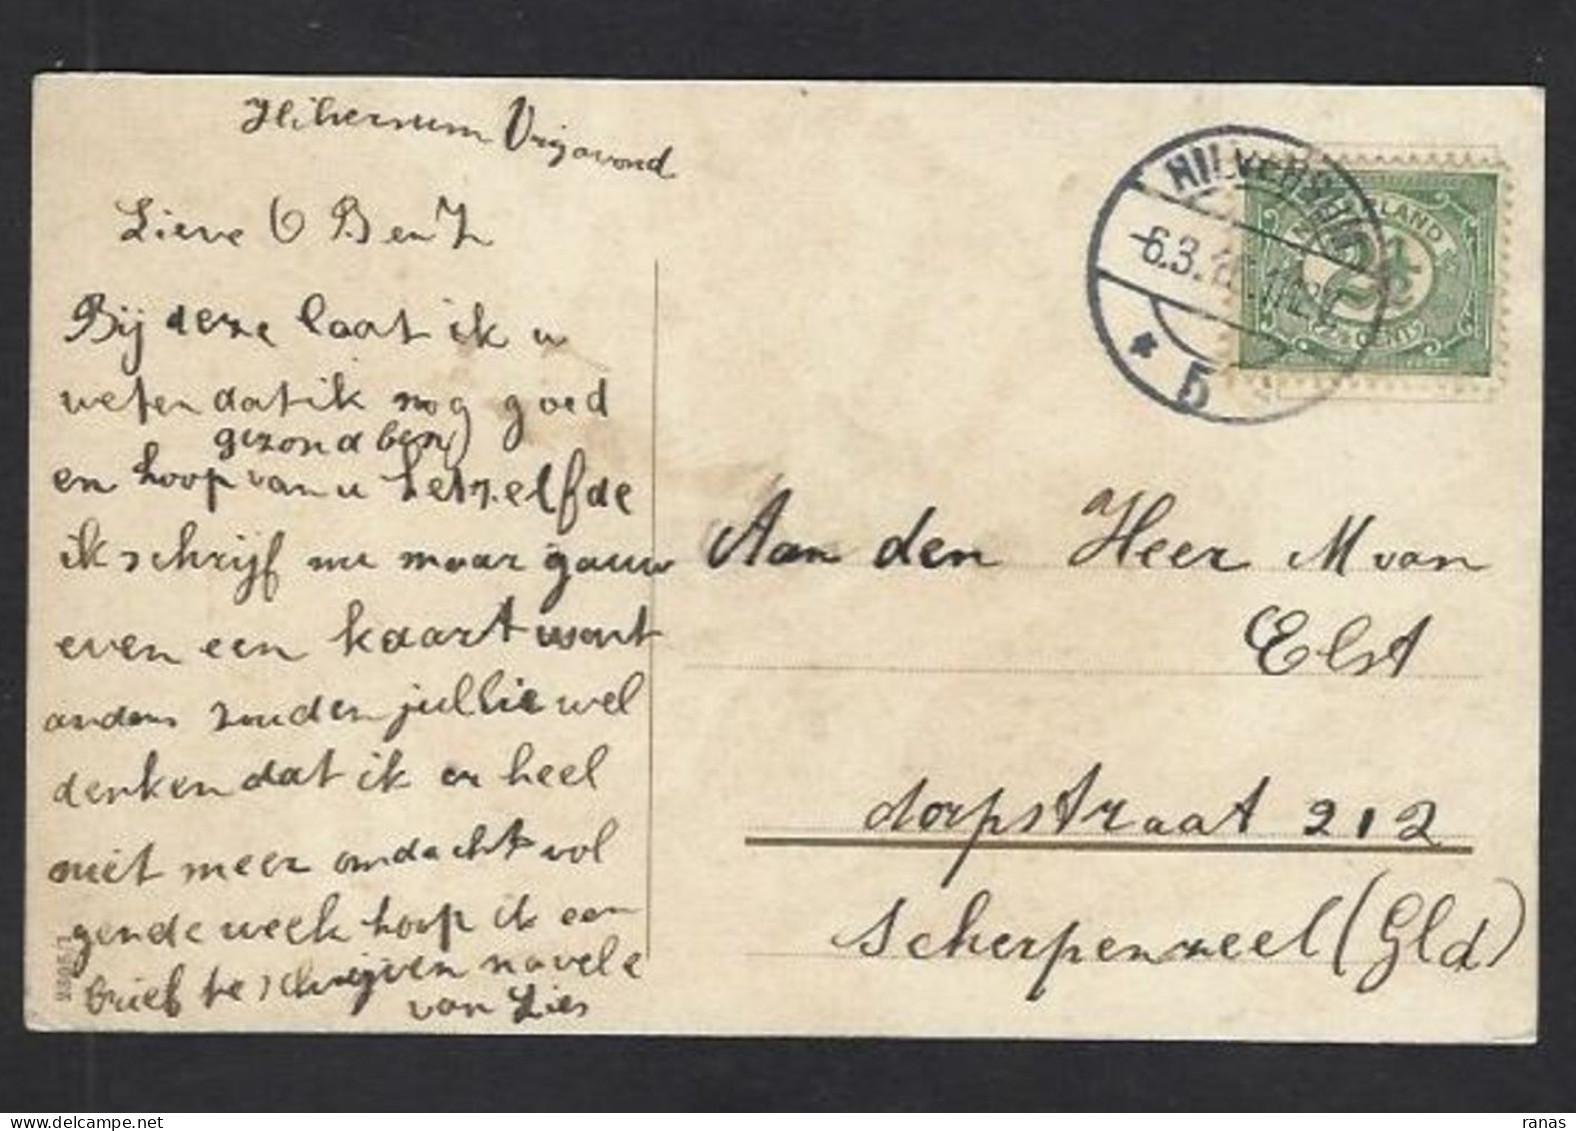 Hilversum Vrijavond
Lieve O B en Z
Bij deze laat ik u
weten dat ik nog goed
gezond ben)
en hoop van u hetzelfde
ik schrijf nu maar gauw
even een kaart want
anders zouden jullie wel
denken dat ik er heel
niet meer om dacht vol
gende week hoop ik een
brief te schrijven
van Lies
HILVERSUM
-6.3.
5
NEDERLAND
2½
2½ CENT
Aan den Heer M van
Elst
dorpstraat 212
Scherpenzeel (Gld)
ranas